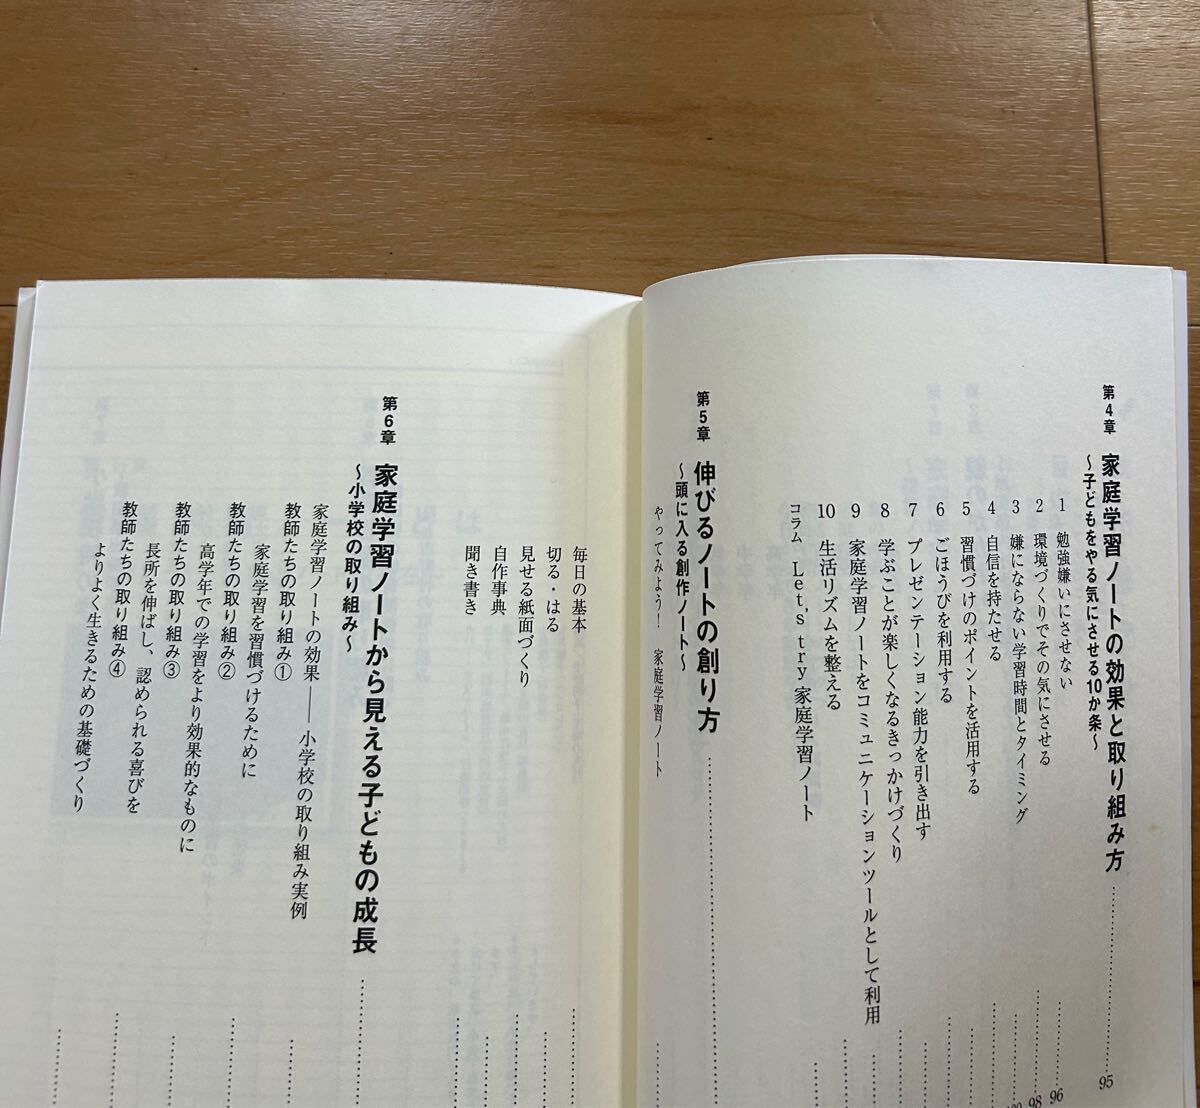 第4章 家庭学習ノートの効果と取り組み方 95
～子どもをやる気にさせる10か条～
1 勉強嫌いにさせない 96
2 環境づくりでその気にさせる 98
3 嫌にならない学習時間とタイミング
4 自信を持たせる
5 習慣づけのポイントを活用する
6 ごほうびを利用する
7 プレゼンテーション能力を引き出す
8 学ぶことが楽しくなるきっかけづくり
9 家庭学習ノートをコミュニケーションツールとして利用
10 生活リズムを整える
コラム Let's try 家庭学習ノート
第5章 伸びるノートの創り方
～頭に入る創作ノート～
やってみよう! 家庭学習ノート
毎日の基本
切る・はる
見せる紙面づくり
自作事典
聞き書き
第6章 家庭学習ノートから見える子どもの成長
～小学校の取り組み～
家庭学習ノートの効果――小学校の取り組み実例
教師たちの取り組み①
家庭学習を習慣づけるために
教師たちの取り組み②
高学年での学習をより効果的なものに
教師たちの取り組み③
長所を伸ばし、認められる喜びを
教師たちの取り組み④
よりよく生きるための基礎づくり